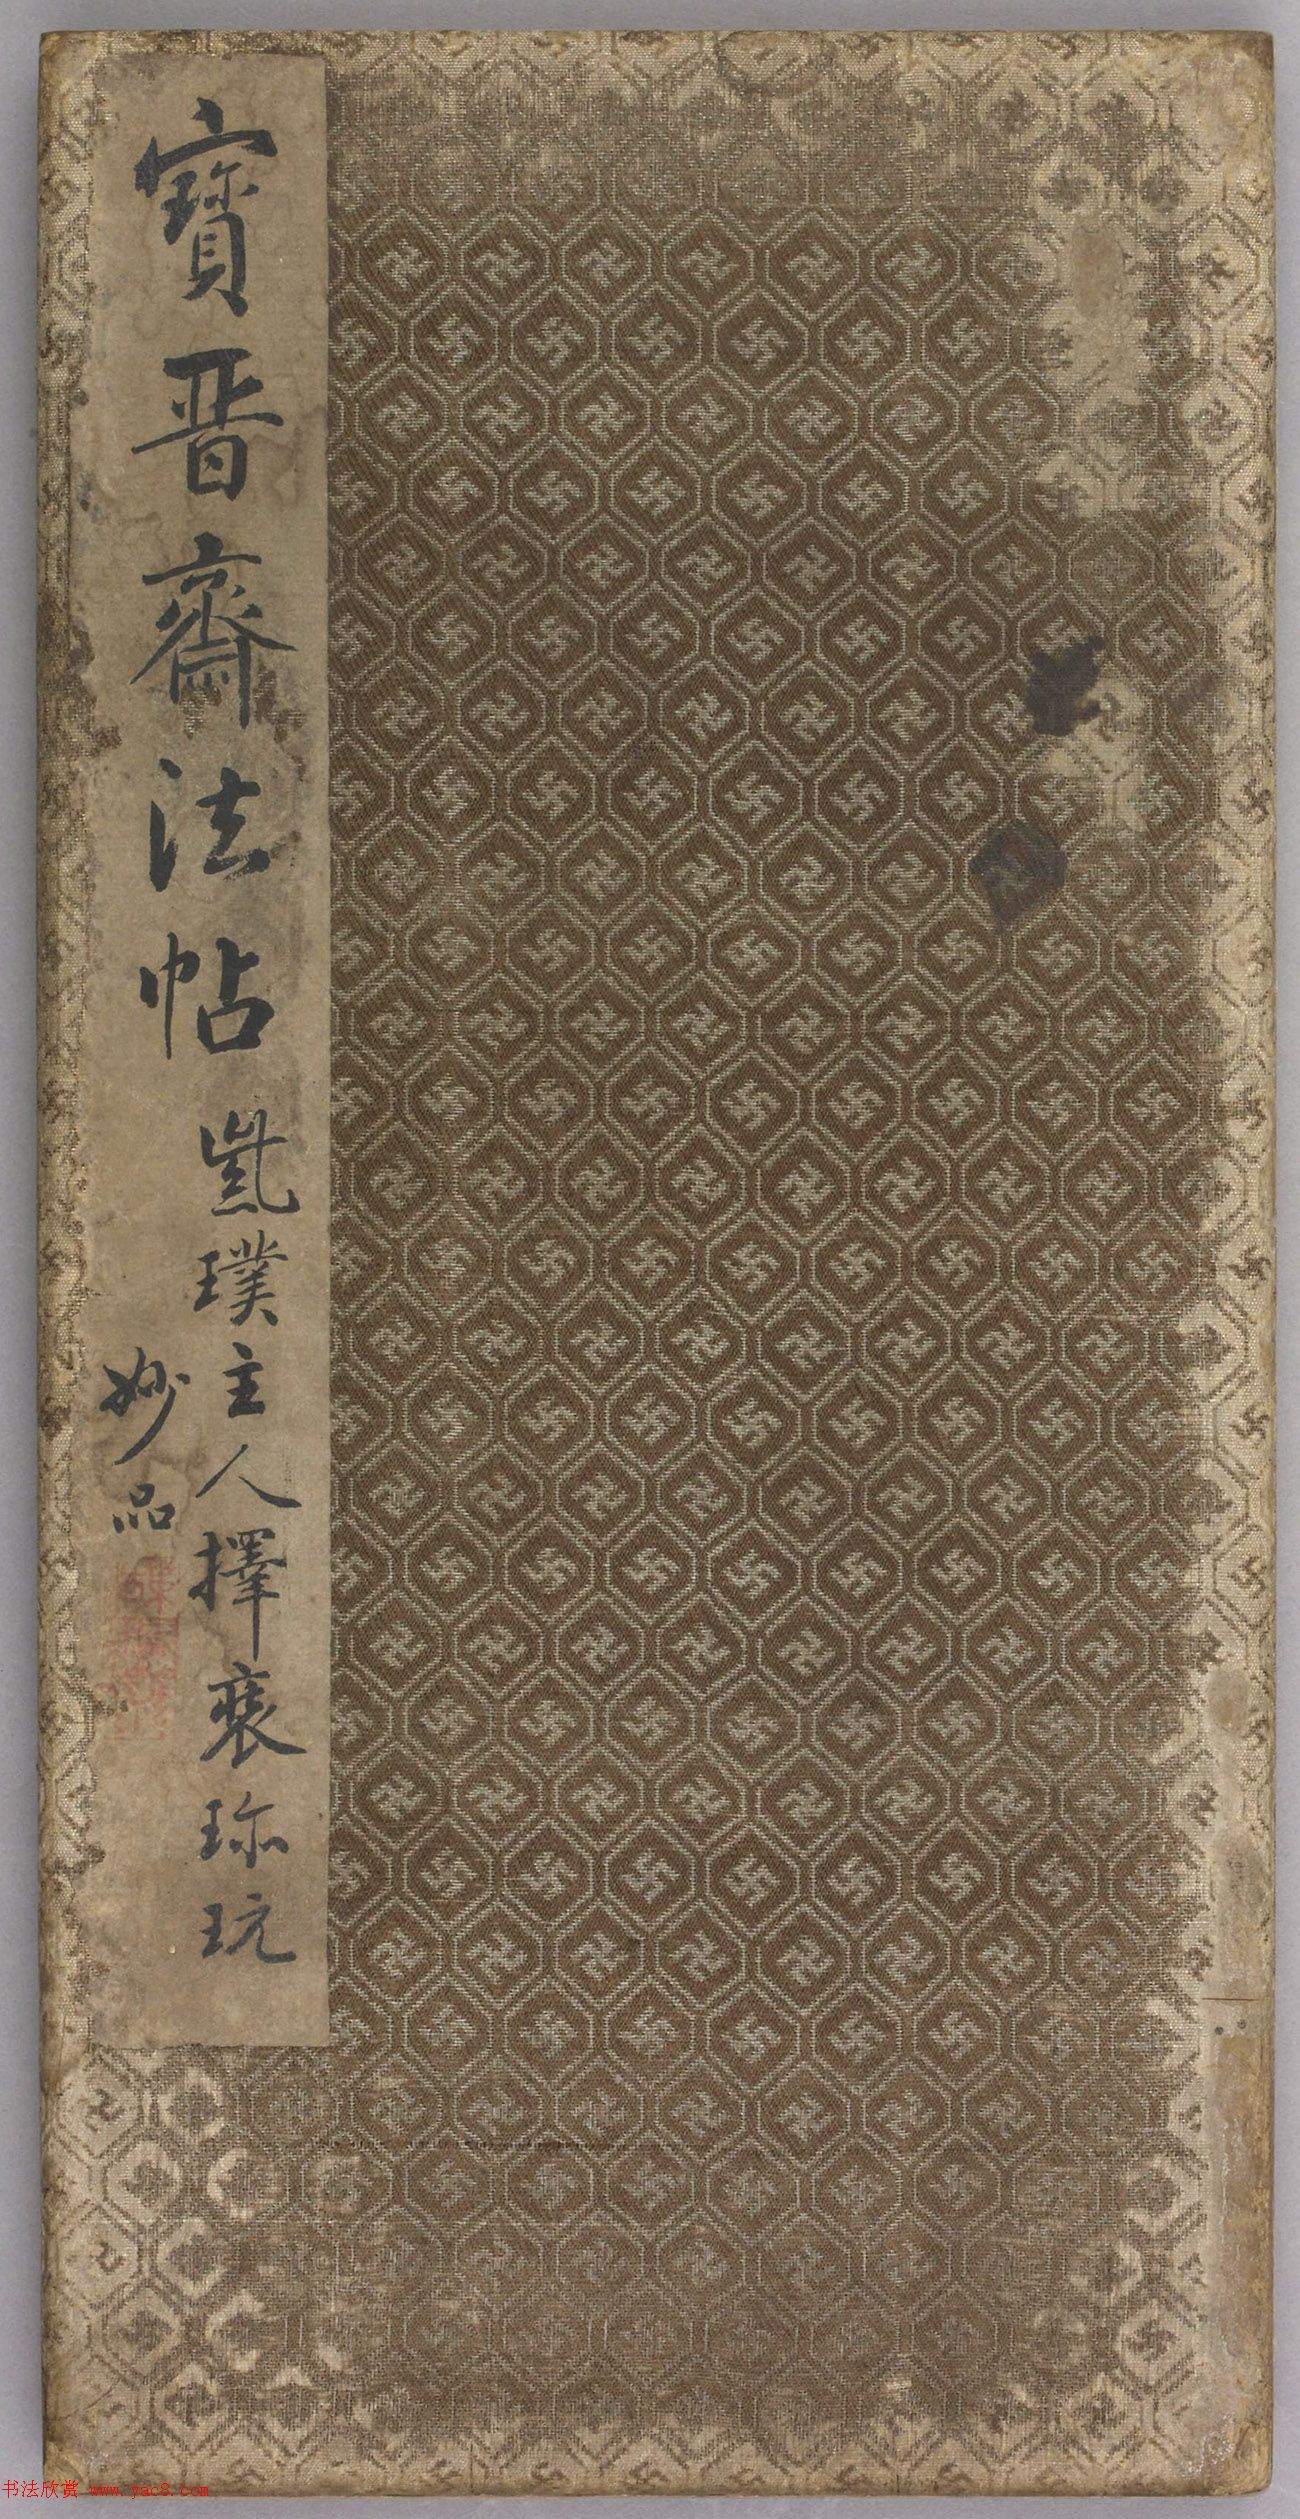 寶晋齋法帖
璞主人擇裝珎玩
妙品
书法欣赏 www.yac8.com